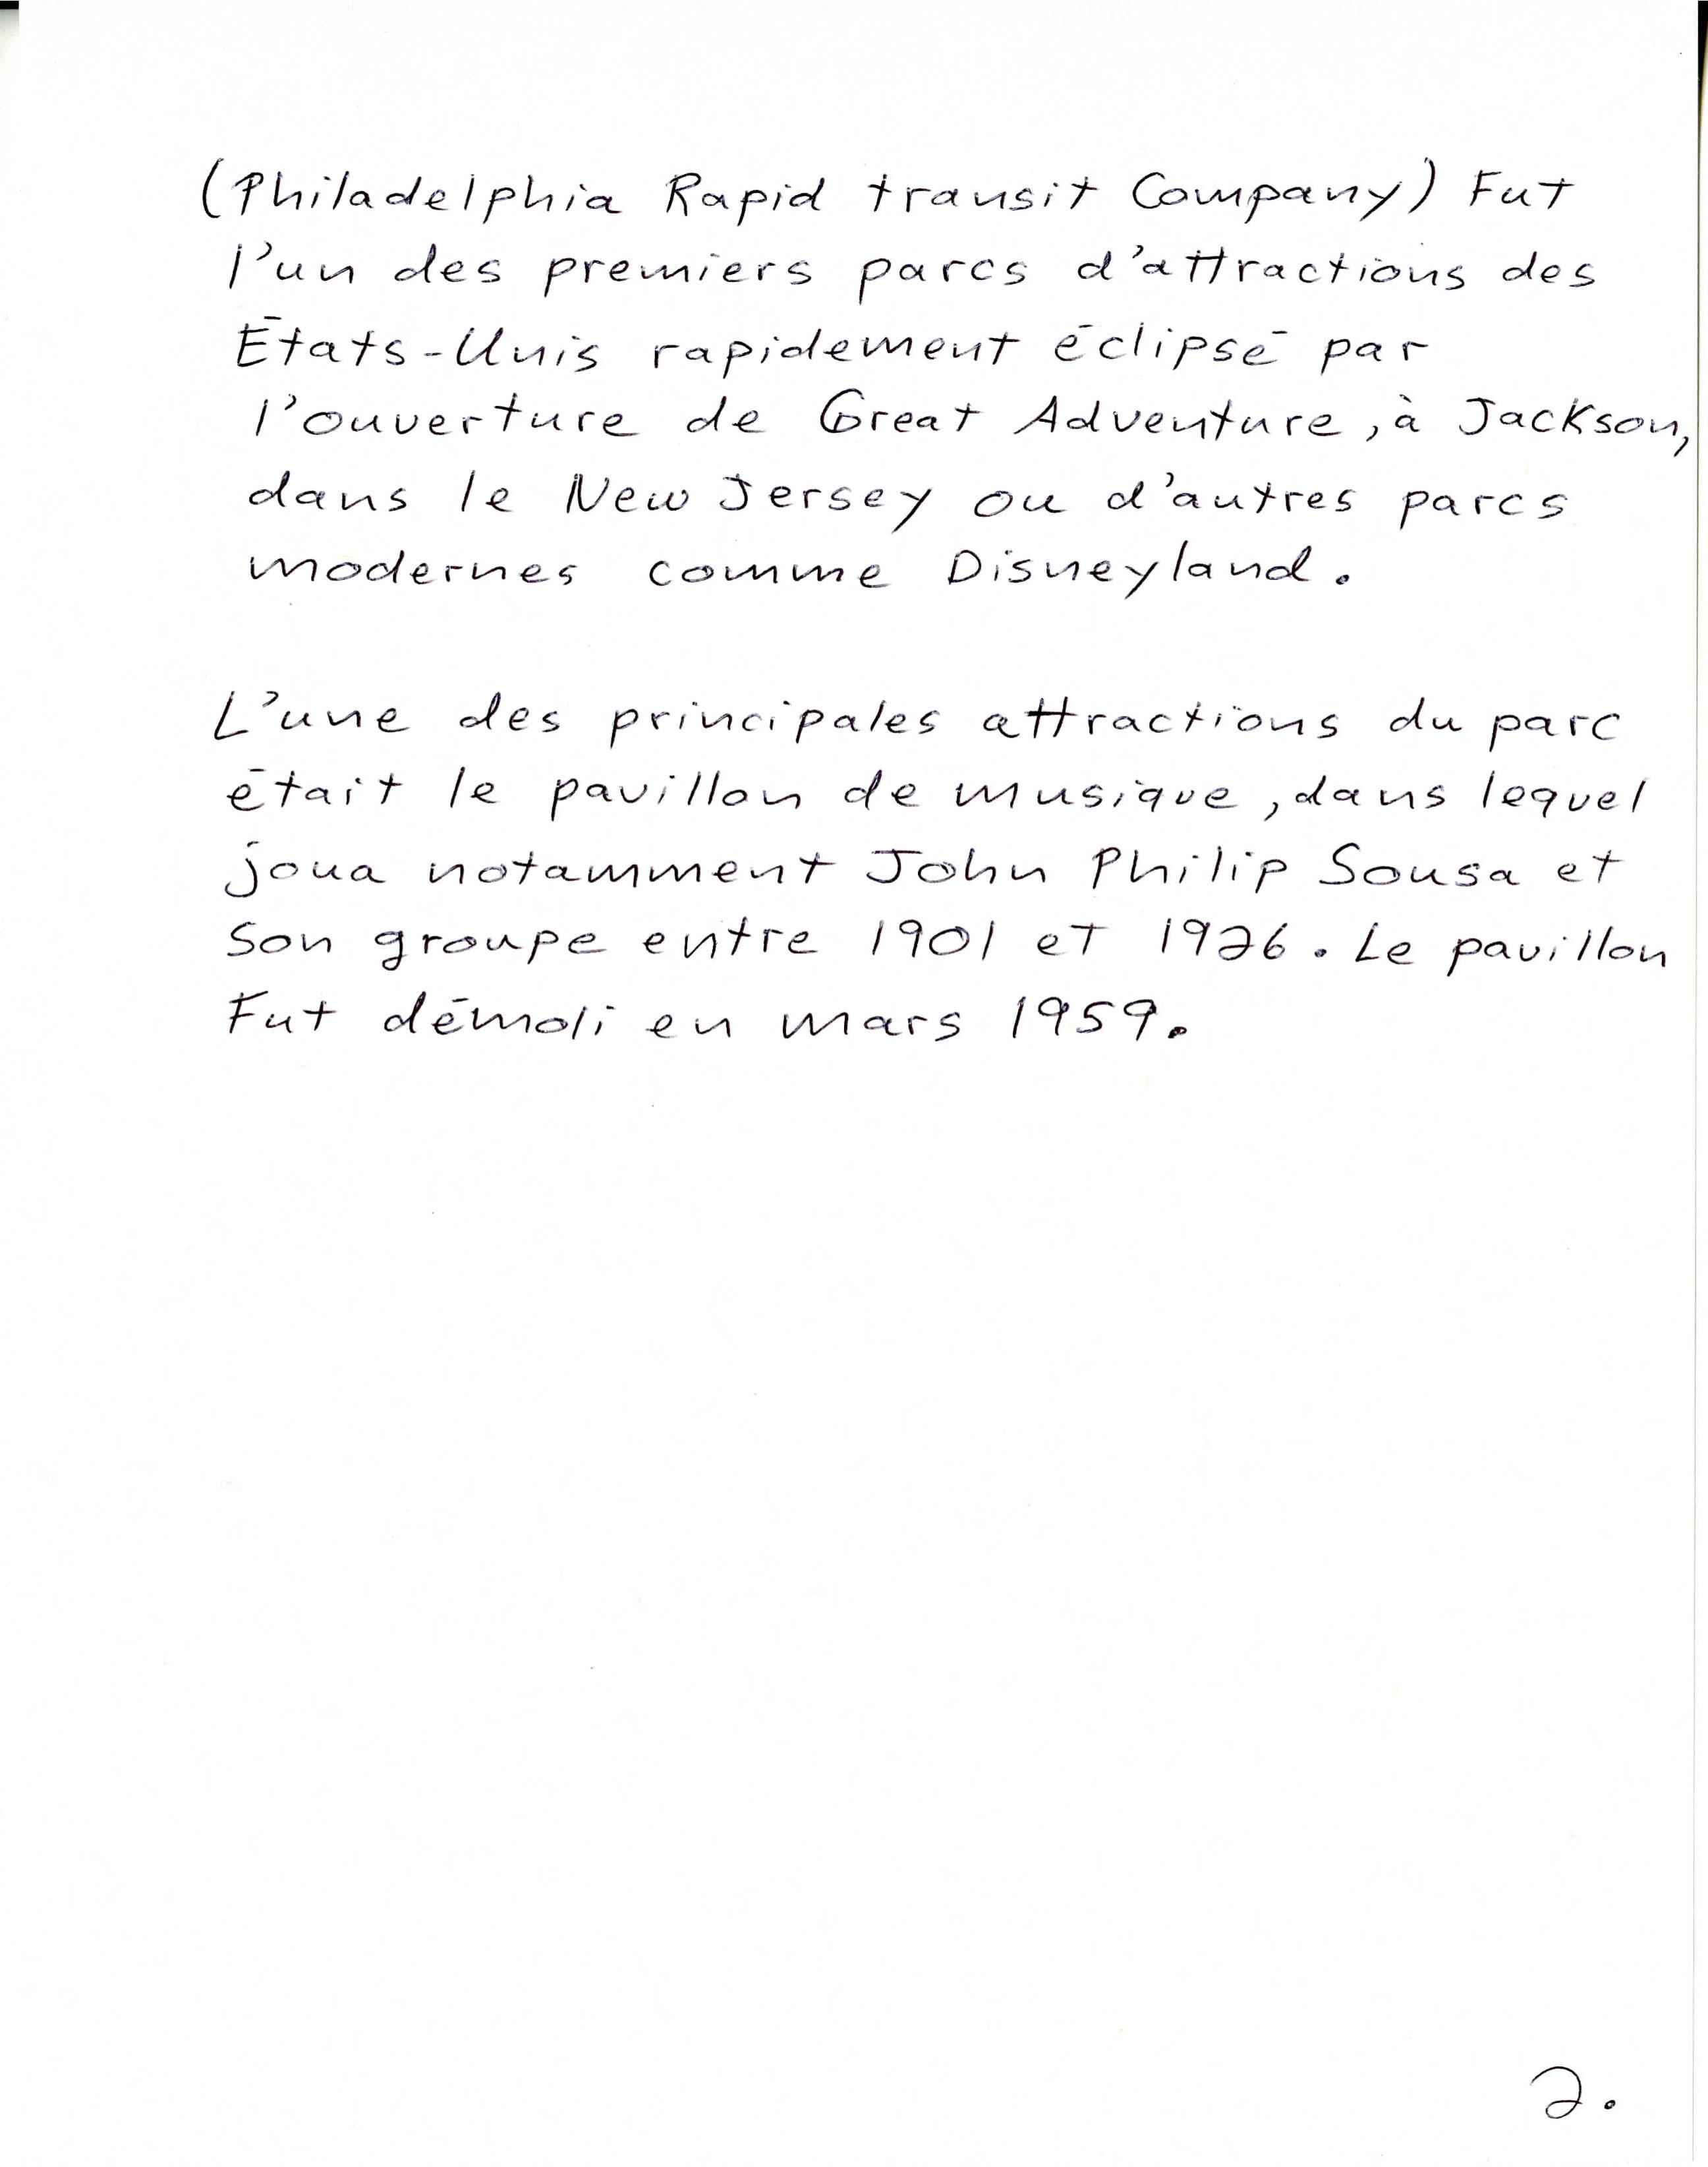 (Philadelphia Rapid transit Company) Fut
l'un des premiers parcs d'attractions des
États-Unis rapidement éclipsé par
l'ouverture de Great Adventure, à Jackson,
dans le New Jersey ou d'autres parcs
modernes comme Disneyland.
L'une des principales attractions du parc
était le pavillon de musique, dans lequel
joua notamment John Philip Sousa et
son groupe entre 1901 et 1926. Le pavillon
Fut démoli en mars 1959.
2.